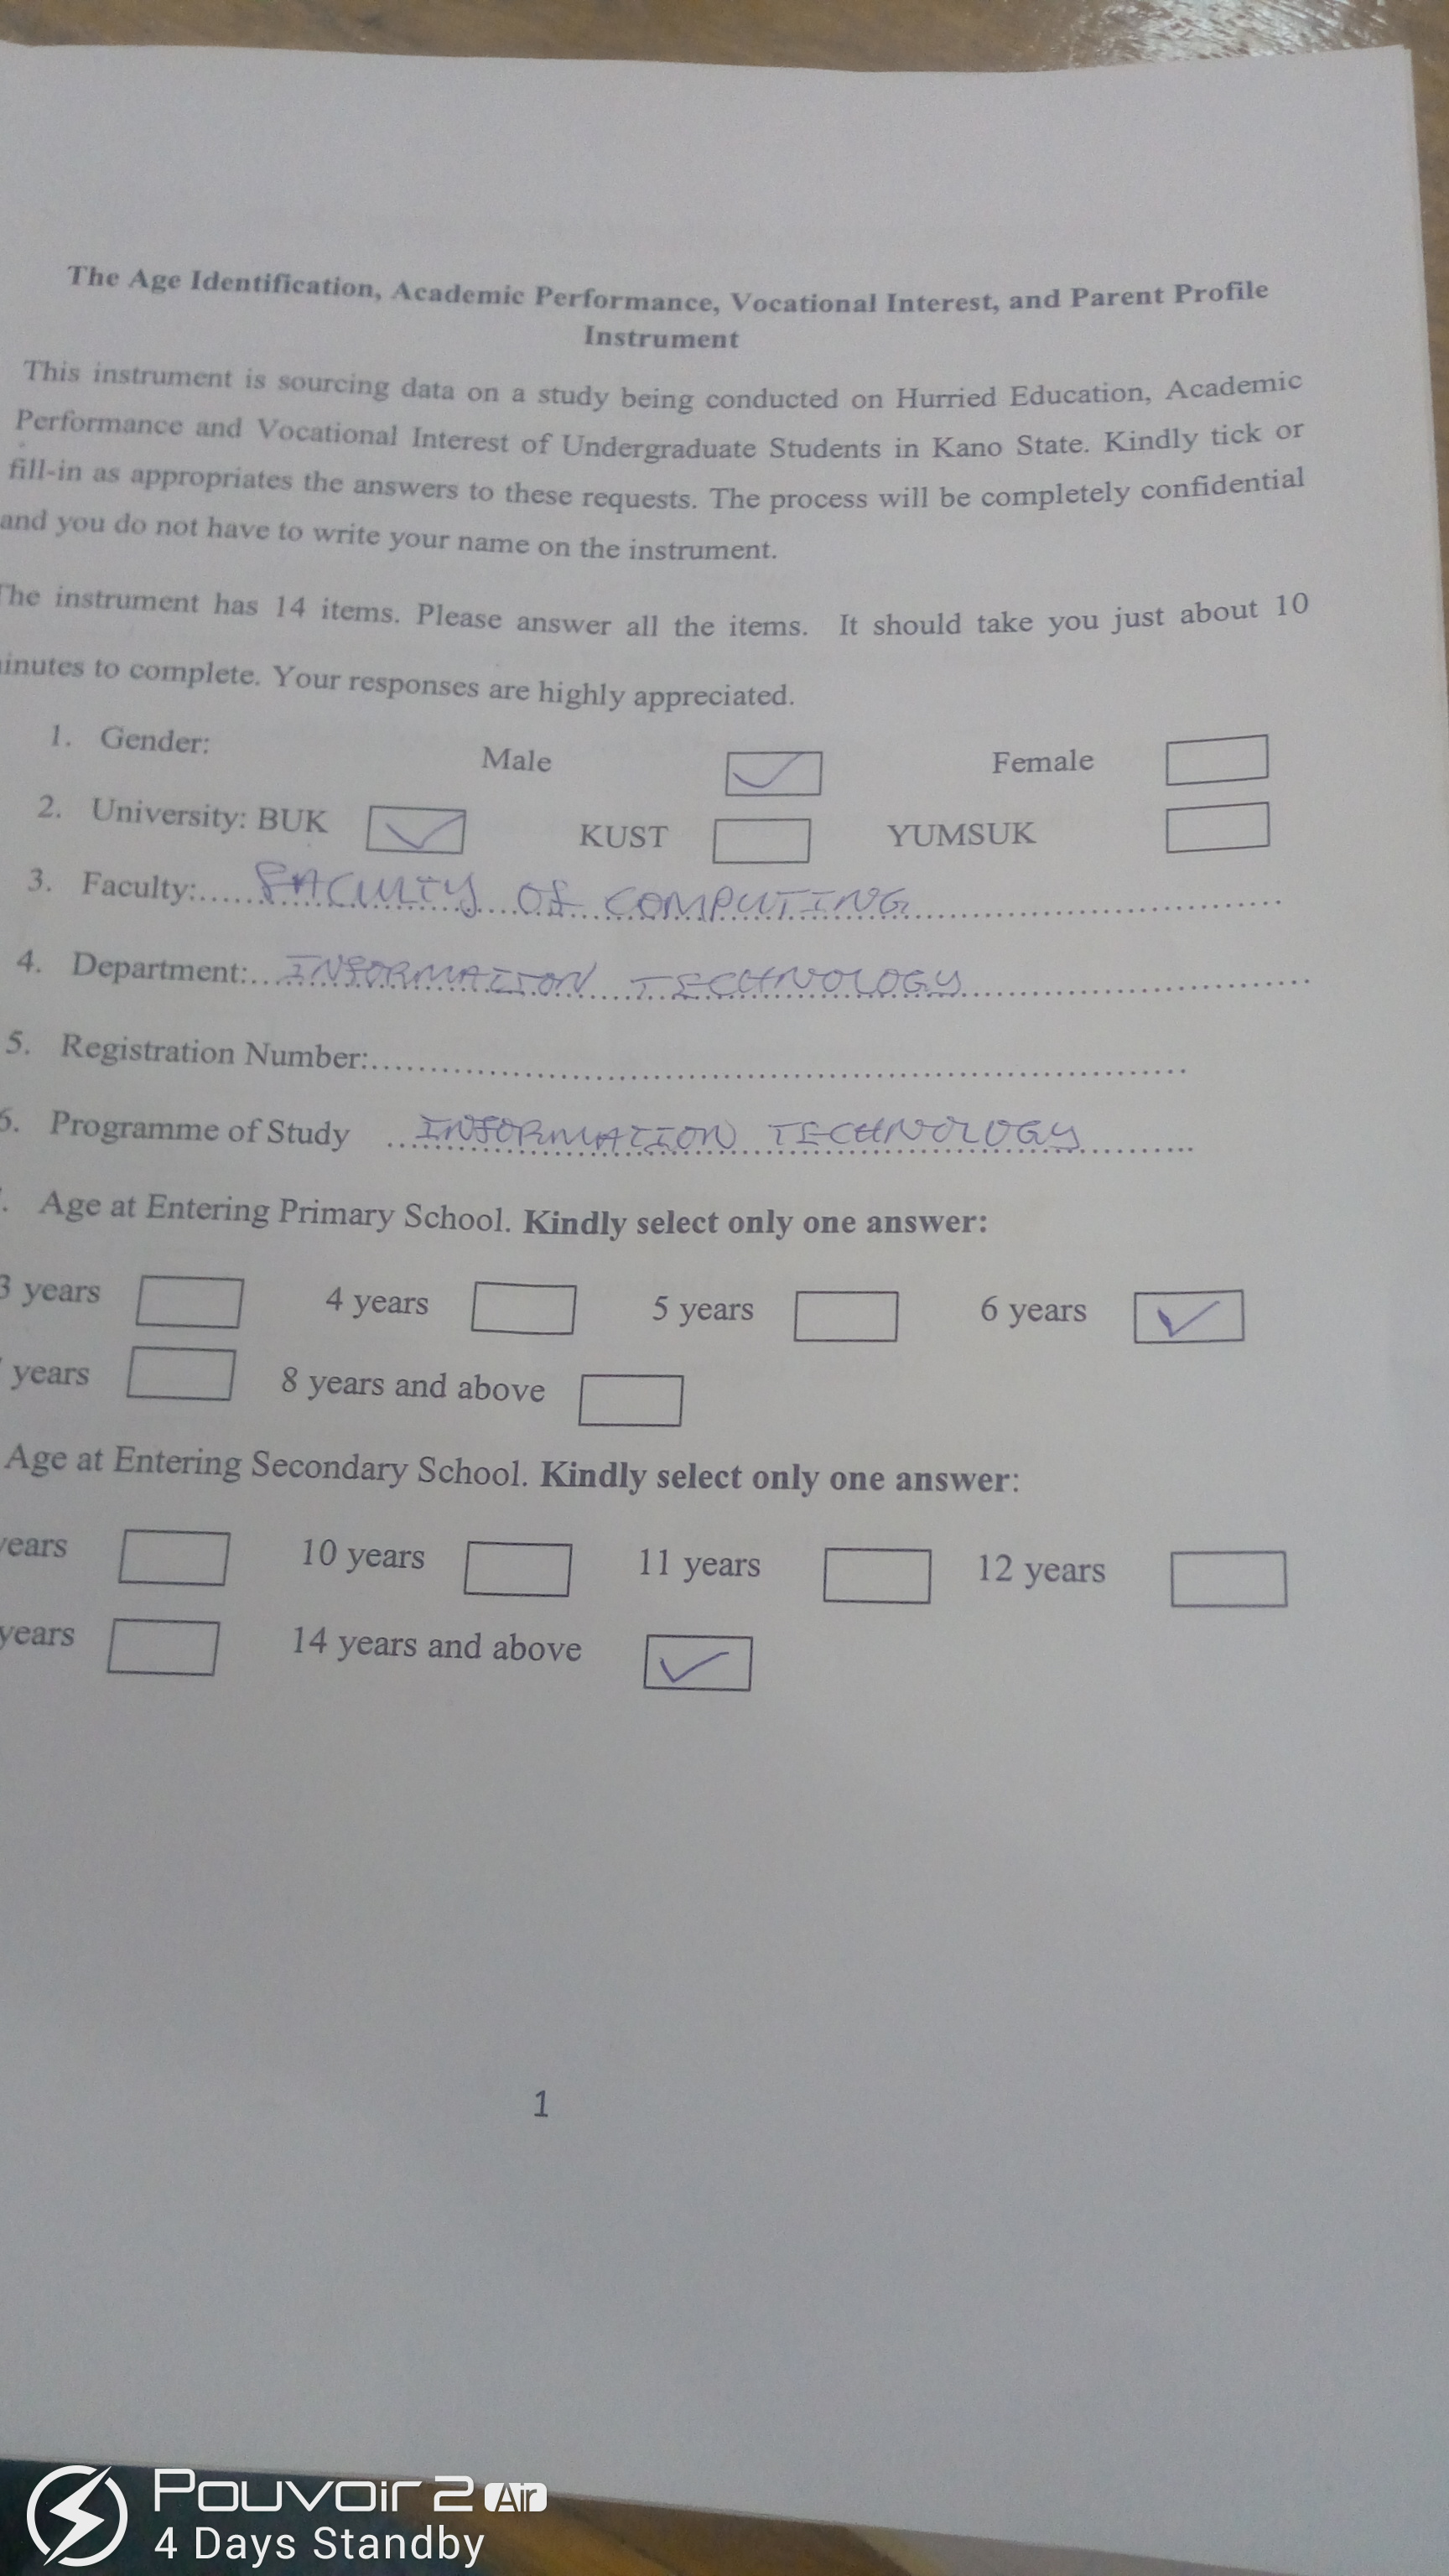 The Age Identification, Academic Performance, Vocational Interest, and Parent Profile
Instrument
This instrument is sourcing data on a study being conducted on Hurried Education, Academic
Performance and Vocational Interest of Undergraduate Students in Kano State. Kindly tick or
fill-in as appropriates the answers to these requests. The process will be completely confidential
and you do not have to write your name on the instrument.
The instrument has 14 items. Please answer all the items. It should take you just about 10
inutes to complete. Your responses are highly appreciated.
1. Gender: Male ✓ Female
2. University: BUK ✓ KUST YUMSUK
3. Faculty:..... FACULTY OF COMPUTING
4. Department:... INFORMATION TECHNOLOGY
5. Registration Number:........
6. Programme of Study ... INFORMATION TECHNOLOGY
. Age at Entering Primary School. Kindly select only one answer:
3 years 4 years 5 years 6 years ✓
years 8 years and above
Age at Entering Secondary School. Kindly select only one answer:
years 10 years 11 years 12 years
years 14 years and above ✓
1
Pouvoir 2 Air
4 Days Standby